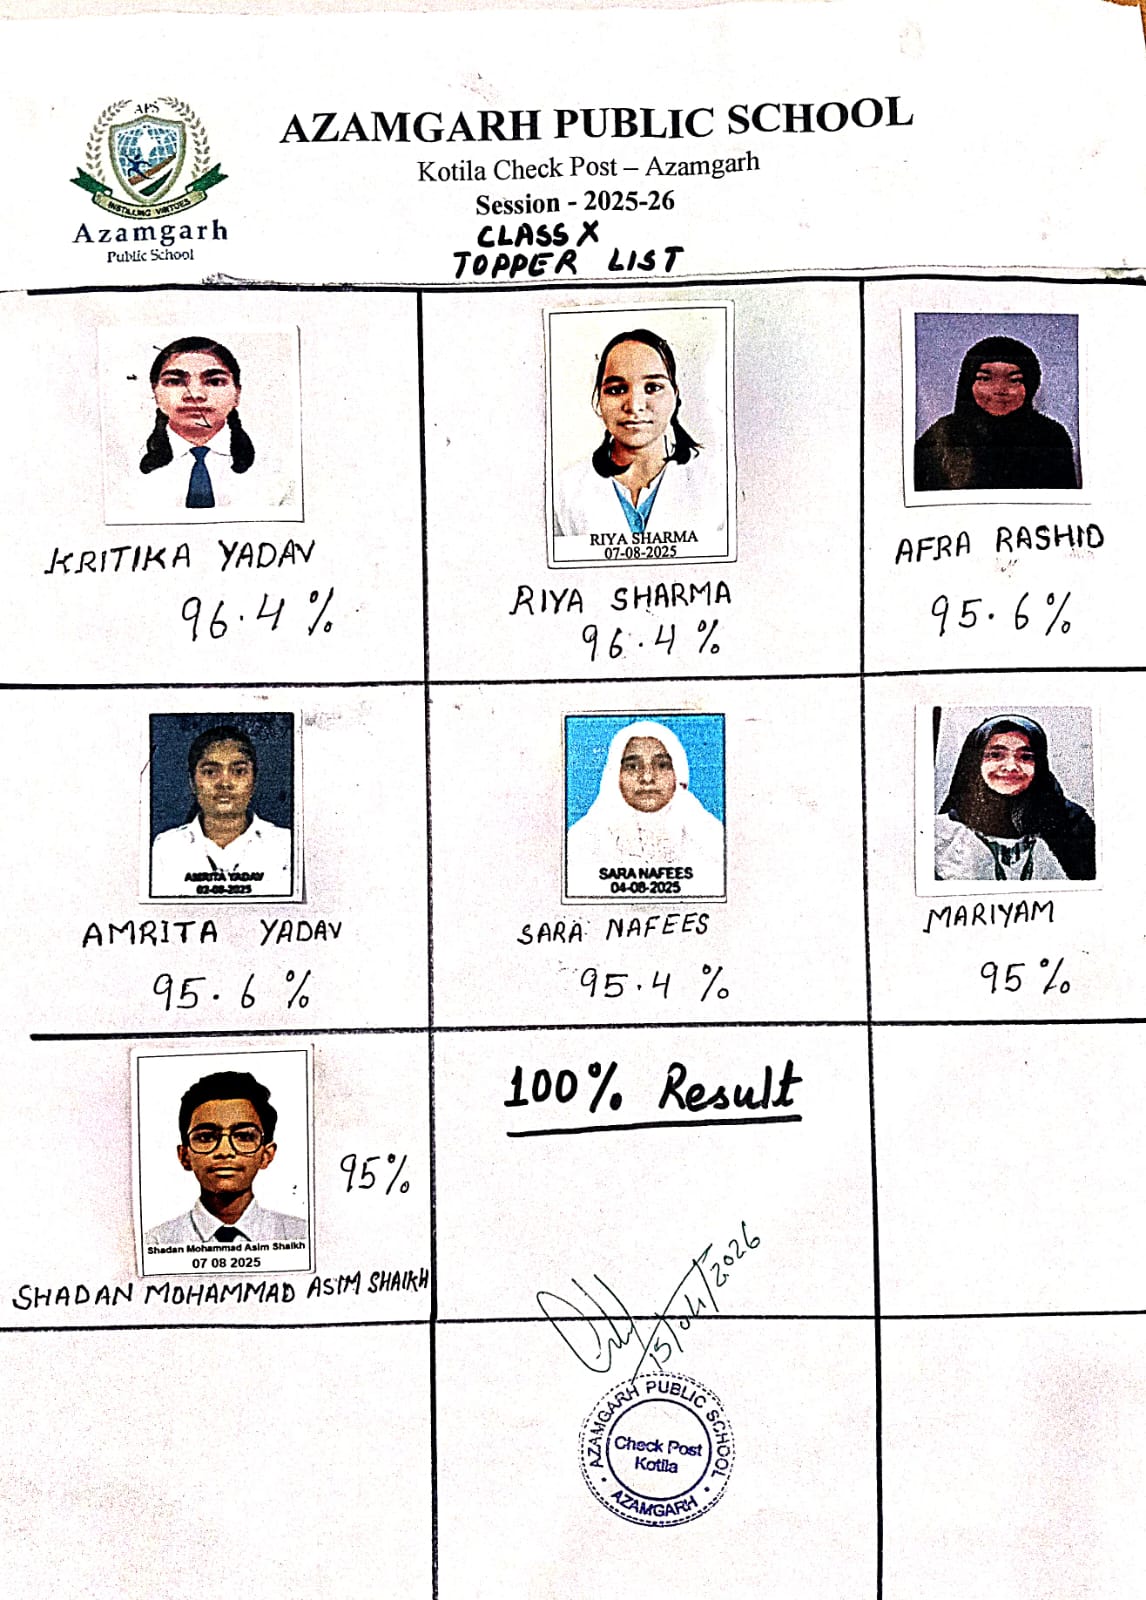 APS
INSTILLING VIRTUES
Azamgarh
Public School
AZAMGARH PUBLIC SCHOOL
Kotila Check Post – Azamgarh
Session - 2025-26
CLASS X
TOPPER LIST
KRITIKA YADAV
96.4 %
RIYA SHARMA
07-08-2025
RIYA SHARMA
96.4 %
AFRA RASHID
95.6 %
AMRITA YADAV
02-08-2025
AMRITA YADAV
95.6 %
SARA NAFEES
04-08-2025
SARA NAFEES
95.4 %
MARIYAM
95 %
Shadan Mohammad Asim Shaikh
07 08 2025
95%
SHADAN MOHAMMAD ASIM SHAIKH
100% Result
15/04/2026
AZAMGARH PUBLIC SCHOOL
Check Post
Kotila
AZAMGARH